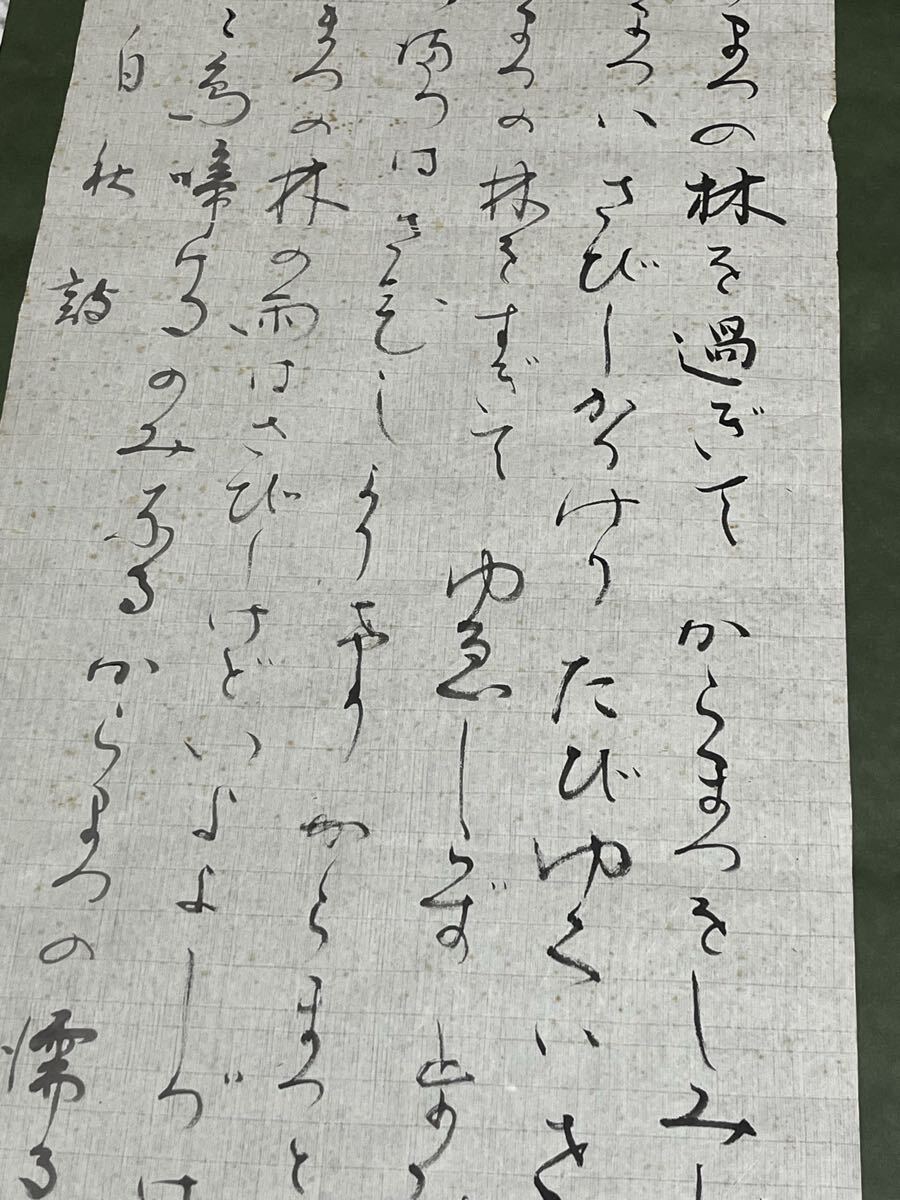 まつの林を過ぎて からまつをしみじ
まつは さびしかりけり たびゆくはさ
まつの林をすぎて ゆゑしらず 歩
まつは さびしかりけり からまつと
まつの林の雨はさびしけどいよよしづけ
鳥啼けるのみなる からまつの濡る
白秋詩